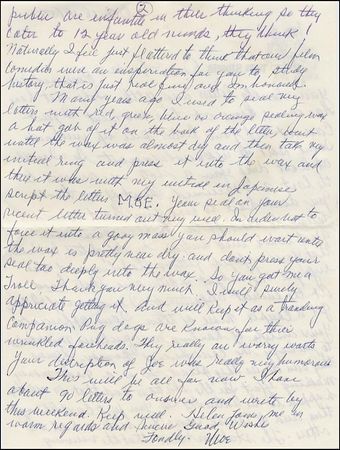 ②
public are infantile in their thinking so they
cater to 12 year old minds, they think!
Naturally I feel just flattered to think that our film
comedies were an inspiration for you to study
history, that is just real fine and Im honored.
Many years ago I used to seal my
letters with red, green, blue or orange sealing wax
a hot gob of it on the back of the letter, wait
until the wax was almost dry and then take my
initial ring and press it into the wax and
there it was with my initial in Japanese
script the letters MOE. Your seal on your
recent letter turned out very well. In order not to
force it into a gooy mass you should wait until
the wax is pretty near dry and dont press your
seal too deeply into the wax. So you got me a
Troll. Thank you very much. I will surely
appriciate getting it and will keep it as a
companion. Pug dogs are known for their
wrinkled foreheads. They really are worry warts
Your discreption of Joe was really very humorous
This will be all for now I have
about 90 letters to answer and write by
this weekend. Keep well. Helen joins me in
warm regards and sincere Good Wishes
Fondly. Moe